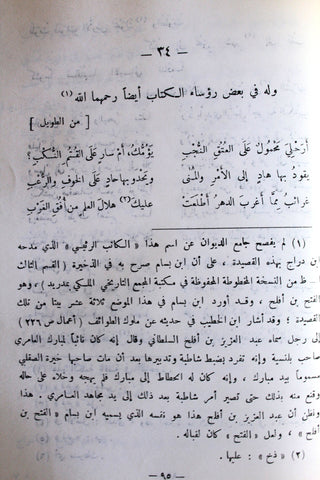 — ٣٤ —
وله في بعض رؤساء الكتاب أيضاً رحمهما الله (١)
[ من الطويل ]
أرَحْلِيَ مَحْمولٌ على العُتُقِ النُّجْبِ يَؤمُّكَ، أمْ سارٍ على القُتُمِ النُّكْبِ؟
يقودُ بها هادٍ إلى الأمْنِ والمُنى ويَحْدو بها حادٍ على الخوفِ والرُّعْبِ
غرائبُ ممّا أغربَ الدهرُ أطْلَعَتْ عليكَ (٢) هلالَ العلمِ من أُفُقِ الغَرْبِ
(١) لم يفصح جامع الديوان عن اسم هذا « الكاتب الرئيسي » الذي مدحه
ابن دراج بهذه القصيدة ، على أن ابن بسام صرح به في الذخيرة ( القسم الثالث
من النسخة المخطوطة المحفوظة في مكتبة المجمع التاريخي الملكي بمدريد ) ، وهو
الفتح بن أفلح ، وقد أورد ابن بسام في هذا الموضع ثلاثة عشر بيتا من تلك
القصيدة ؛ وقد أشار ابن الخطيب في حديثه عن ملوك الطوائف ( أعمال ص ٢٢٦ )
إلى رجل سماه عبد العزيز بن أفلح السلطاني وقال إنه كان نائباً لمبارك العامري
صاحب بلنسية وإنه تفرد بضبط شاطبة وتدبيرها بعد أن مات صاحبها خيرة الصقلبي
مسموماً بيد مبارك ، وإنه كان له انحطاط إلى مبارك فلم يهجه وخلاه على حاله
ودفع منه بذلك حتى تصير أمر شاطبة بعد ذلك إلى يد مجاهد العامري . هذا
ونظن أن عبد العزيز بن أفلح هذا هو نفسه الذي يسميه ابن بسام « الفتح بن
أفلح » ، ولعل « الفتح » كان لقباً له .
(٢) « ذخ » : عليها .
— ٩٥ —